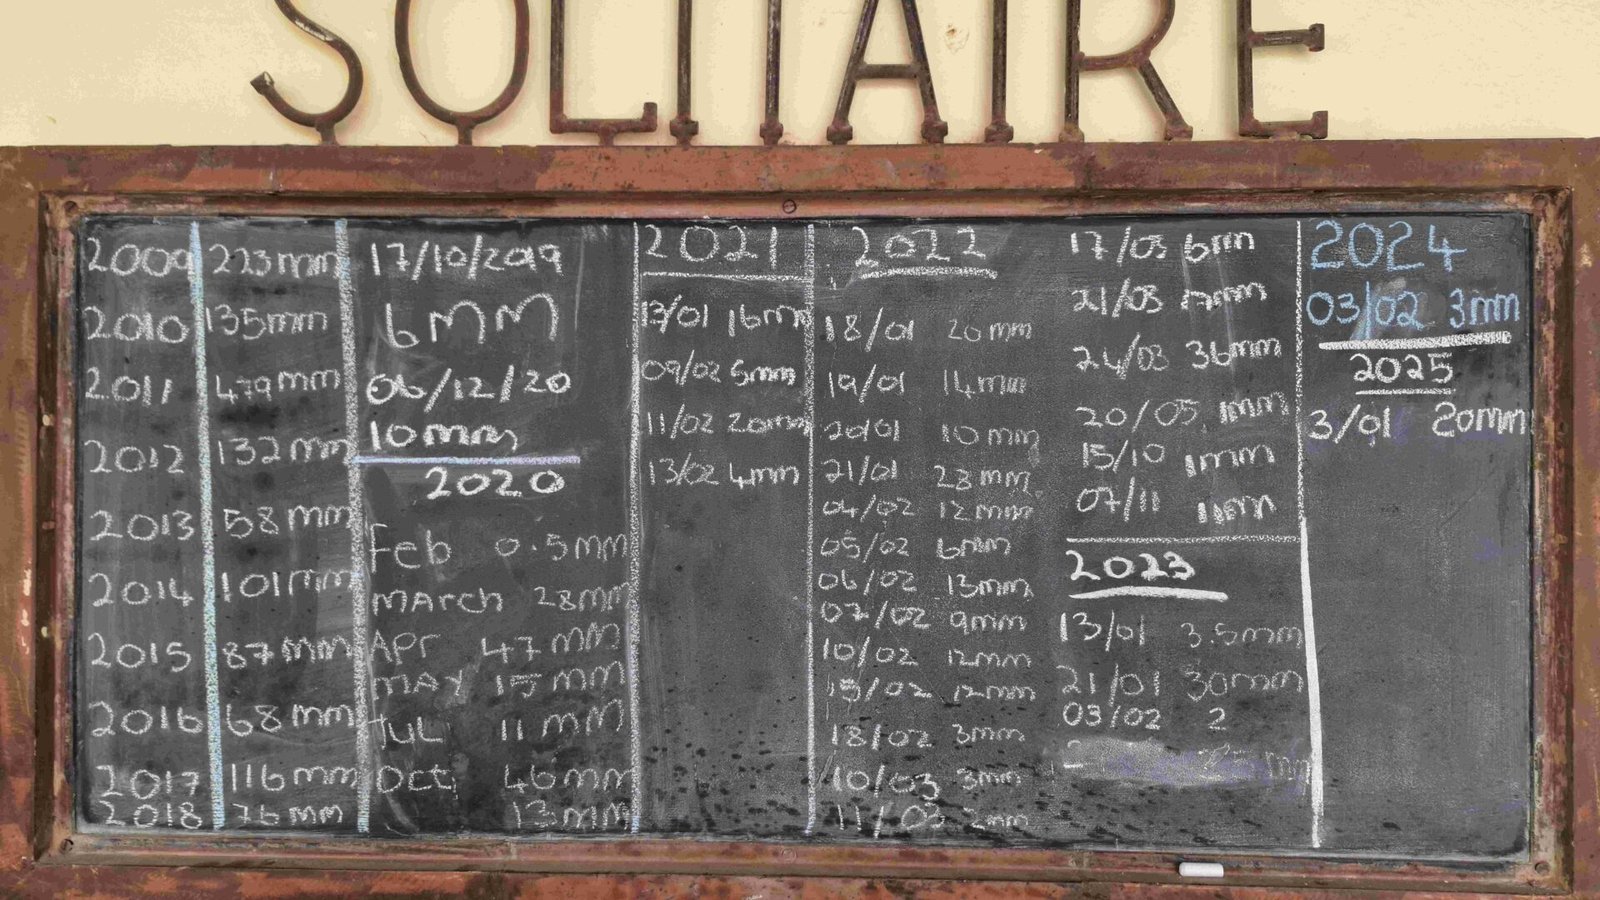 SOLITAIRE
2009 223mm
2010 135mm
2011 479mm
2012 132mm
2013 58mm
2014 101mm
2015 87mm
2016 68mm
2017 116mm
2018 76mm
17/10/2019
6MM
06/12/20
10mm
2020
Feb 0.5mm
MArch 28mm
Apr 47mm
MAY 15mm
JUL 11mm
Oct 46mm
13mm
2021
13/01 16mm
09/02 5mm
11/02 20mm
13/02 4mm
2022
18/01 20mm
19/01 14mm
20/01 10mm
21/01 28mm
04/02 12mm
05/02 6mm
06/02 13mm
07/02 9mm
10/02 12mm
15/02 12mm
18/02 3mm
10/03 3mm
11/03 2mm
17/03 6mm
21/03 7mm
24/03 36mm
20/05 1mm
15/10 1mm
07/11 11mm
2023
13/01 3.5mm
21/01 30mm
03/02 2
2024
03/02 3mm
2025
3/01 20mm